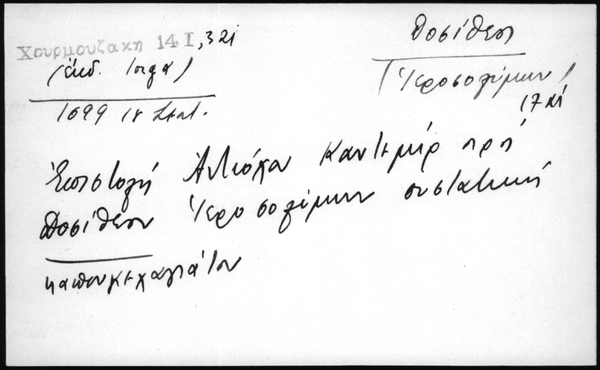 Χουρμουζακη 14 I, 321
(ἐκδ. Ἰόργα)
1699 18 Σεπτ.
Δοσίθεος
(Ἱεροσολύμων)
17 αἰ
Ἐπιστολή Ἀντιόχου Καντεμίρ πρός
Δοσίθεον Ἱεροσολύμων συστατική
καπουκεχαγιάτου